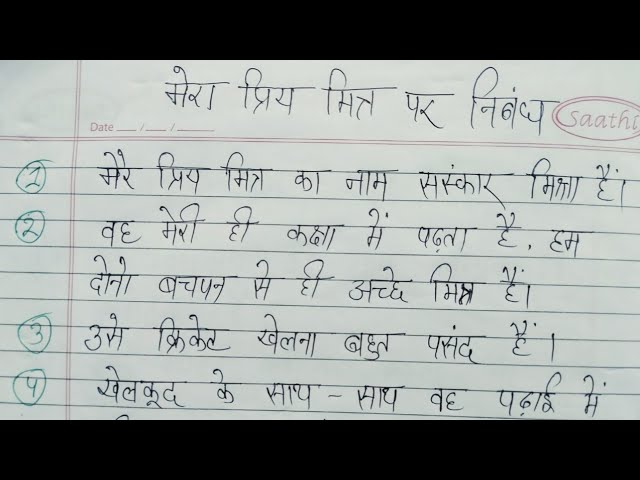 मेरा प्रिय मित्र पर निबंध
saathi
Date __/__/__
1 मेरे प्रिय मित्र का नाम संस्कार मिश्रा हैं।
2 वह मेरी ही कक्षा में पढ़ता है. हम
दोनो बचपन से ही अच्छे मित्र हैं।
3 उसे क्रिकेट खेलना बहुत पसंद हैं।
4 खेलकूद के साथ - साथ वह पढ़ाई में